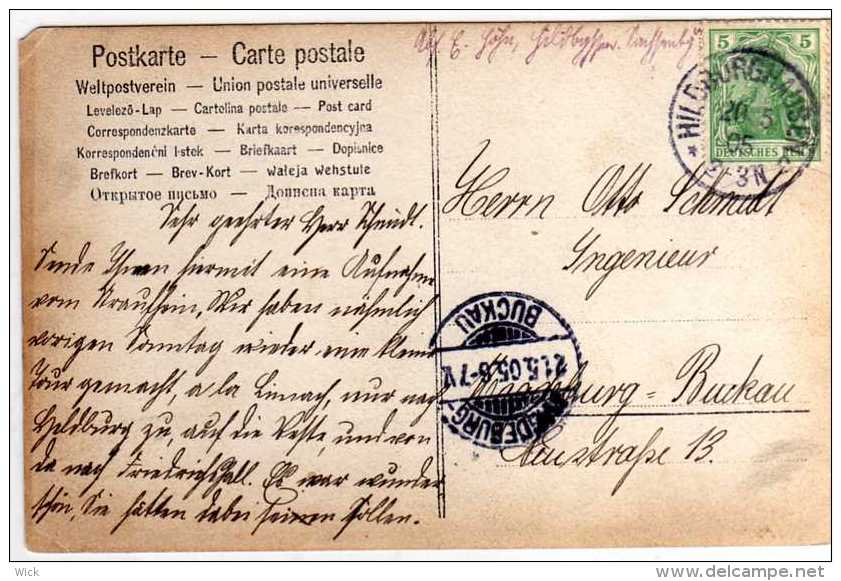 Postkarte — Carte postale
Weltpostverein — Union postale universelle
Levelezō-Lap — Cartolina postale — Post card
Correspondenzkarte — Karta korespondencyjna
Korrespondenční lístek — Briefkaart — Dopisnice
Brefkort — Brev-Kort — waleja wehstule
Открытое письмо — Дописна карта
E. Höhn,
5 5
DEUTSCHES REICH
* HILDBURGHAUSEN *
20 5
05
2-3N
Herrn Otto Schmidt
Ingenieur
Magdeburg-Buckau
Neustraße 13.
BUCKAU
21.5.05. 6-7 V.
MAGDEBURG
Sehr geehrter Herr Schmidt.
Sende Ihnen hiermit eine Aufnahme
vom Wir haben nähmlich
vorigen Sonntag wieder eine kleine
Tour gemacht, a la Limach, nur nach
Heldburg zu, auf die Veste, und von
da nach Friedrichshall. Es war wunder
schön, Sie hätten dabei sein sollen.
Wick
© www.delcampe.net